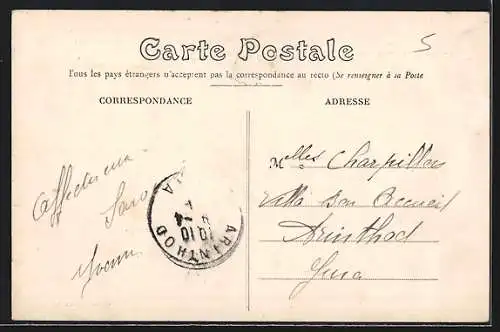 Carte Postale
5
Tous les pays étrangers n'acceptent pas la correspondance au recto (Se renseigner à la Poste
CORRESPONDANCE
ADRESSE
Melles Charpillon
Villa Bon Accueil
Arinthod
Jura
Affectueux
Yvonne
ARINTHOD